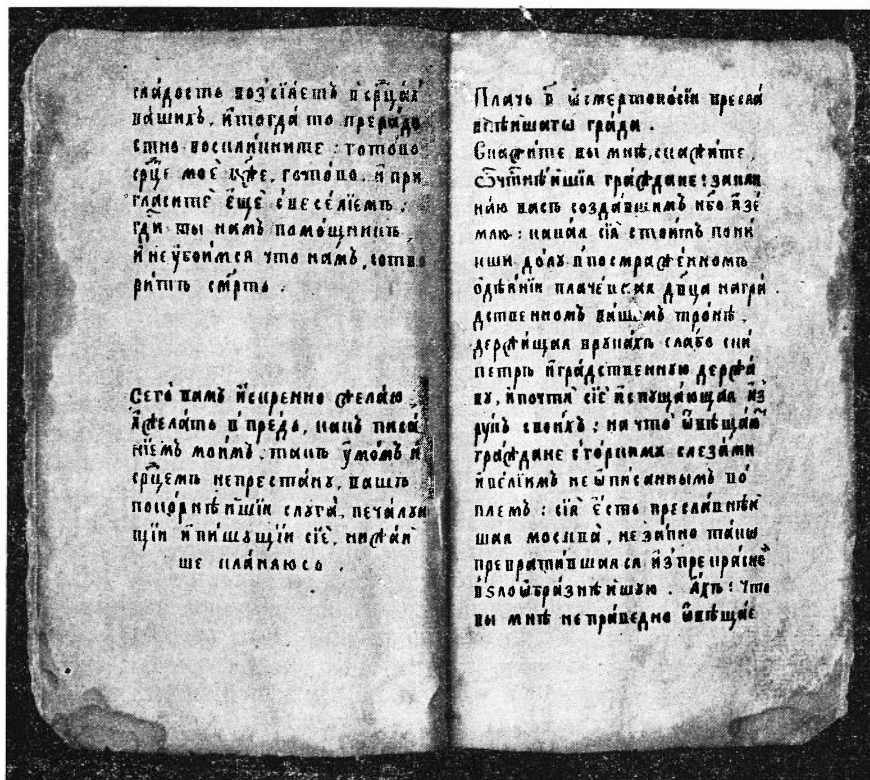 сла́дость возсїѧ́етъ в̾ срⷣца́хъ
ва́шихъ, и҆тогда̀ то прера́до
стно восплищи́те: гото́во
срⷣце моѐ бж҃е, гото́во. и҆ при
гласи́те є҆щѐ с̾весе́лїемъ:
гдⷭ҇и ты намъ помо́щникъ,
и҆ не ᲂу҆бои́мсѧ что намъ, сотво
ри́тъ сме́рть.
Сегѡ̀ вамъ и҆́скренно жела́ю
и҆жела́ть в̾пре́дь, какъ писа́
нїемъ мои́мъ, та́къ ᲂу҆мо́мъ и҆
срⷣцемъ непреста́ну, вашъ
поко́рнѣ́йшїй слꙋга̀, печа́лꙋю
щїй и҆ пи́шꙋщїй сїѐ, нижа́й
ше кла́нѧюсь.
Пла́чь в҃ ѡ҆смертоно́сїи пресла́
внѣ́йшагѡ гра́да.
Скажи́те вы мнѣ̀, скажи́те,
ѽчтⷭ҇нѣ́йшїѧ гра́ждане! заклина́ю
васъ созда́вшимъ нб҃о и҆зе́
млю: кака́ѧ сїѧ̀ стои́тъ пони́
кши до́лꙋ в̾посмраже́нномъ
ѻ҆дѣѧ́нїи плаче́вскаѧ дв҃и́ца награ́
дственномъ ва́шемъ тро́нѣ,
держа́щаѧ врꙋка́хъ сла́бѡ ски́
петръ и҆гра́дственнꙋю держа́
вꙋ, и҆почтѝ сїѐ и҆спꙋща́ющаѧ и҆з̾
рꙋ́къ свои́хъ: на что ѿвѣща́ютъ
гра́ждане сго́рькими слеза́ми
и҆вели́кимъ неѡ҆пи́саннымъ во́
племъ: сїѧ̀ є҆́сть пресла́внѣ́й
шаѧ москва̀, не за́пно та́кѡ
преврати́вшаѧсѧ и҆зпрекра́сней
в̾ѕлоѡ҆бра́знѣ́йшꙋю. А҆́хъ! что
вы мнѣ непра́ведно ѿвѣща́е